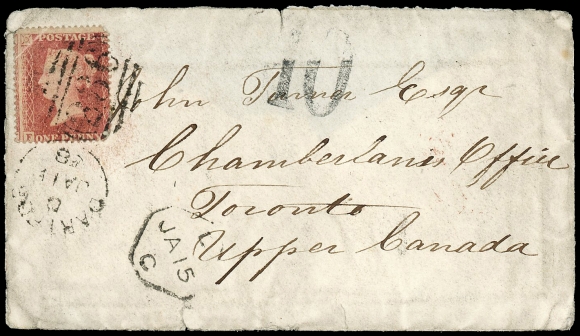 POSTAGE
ONE PENNY
10
John Turner Esqr
Chamberlanes Office
Toronto
Upper Canada
JA 15
C